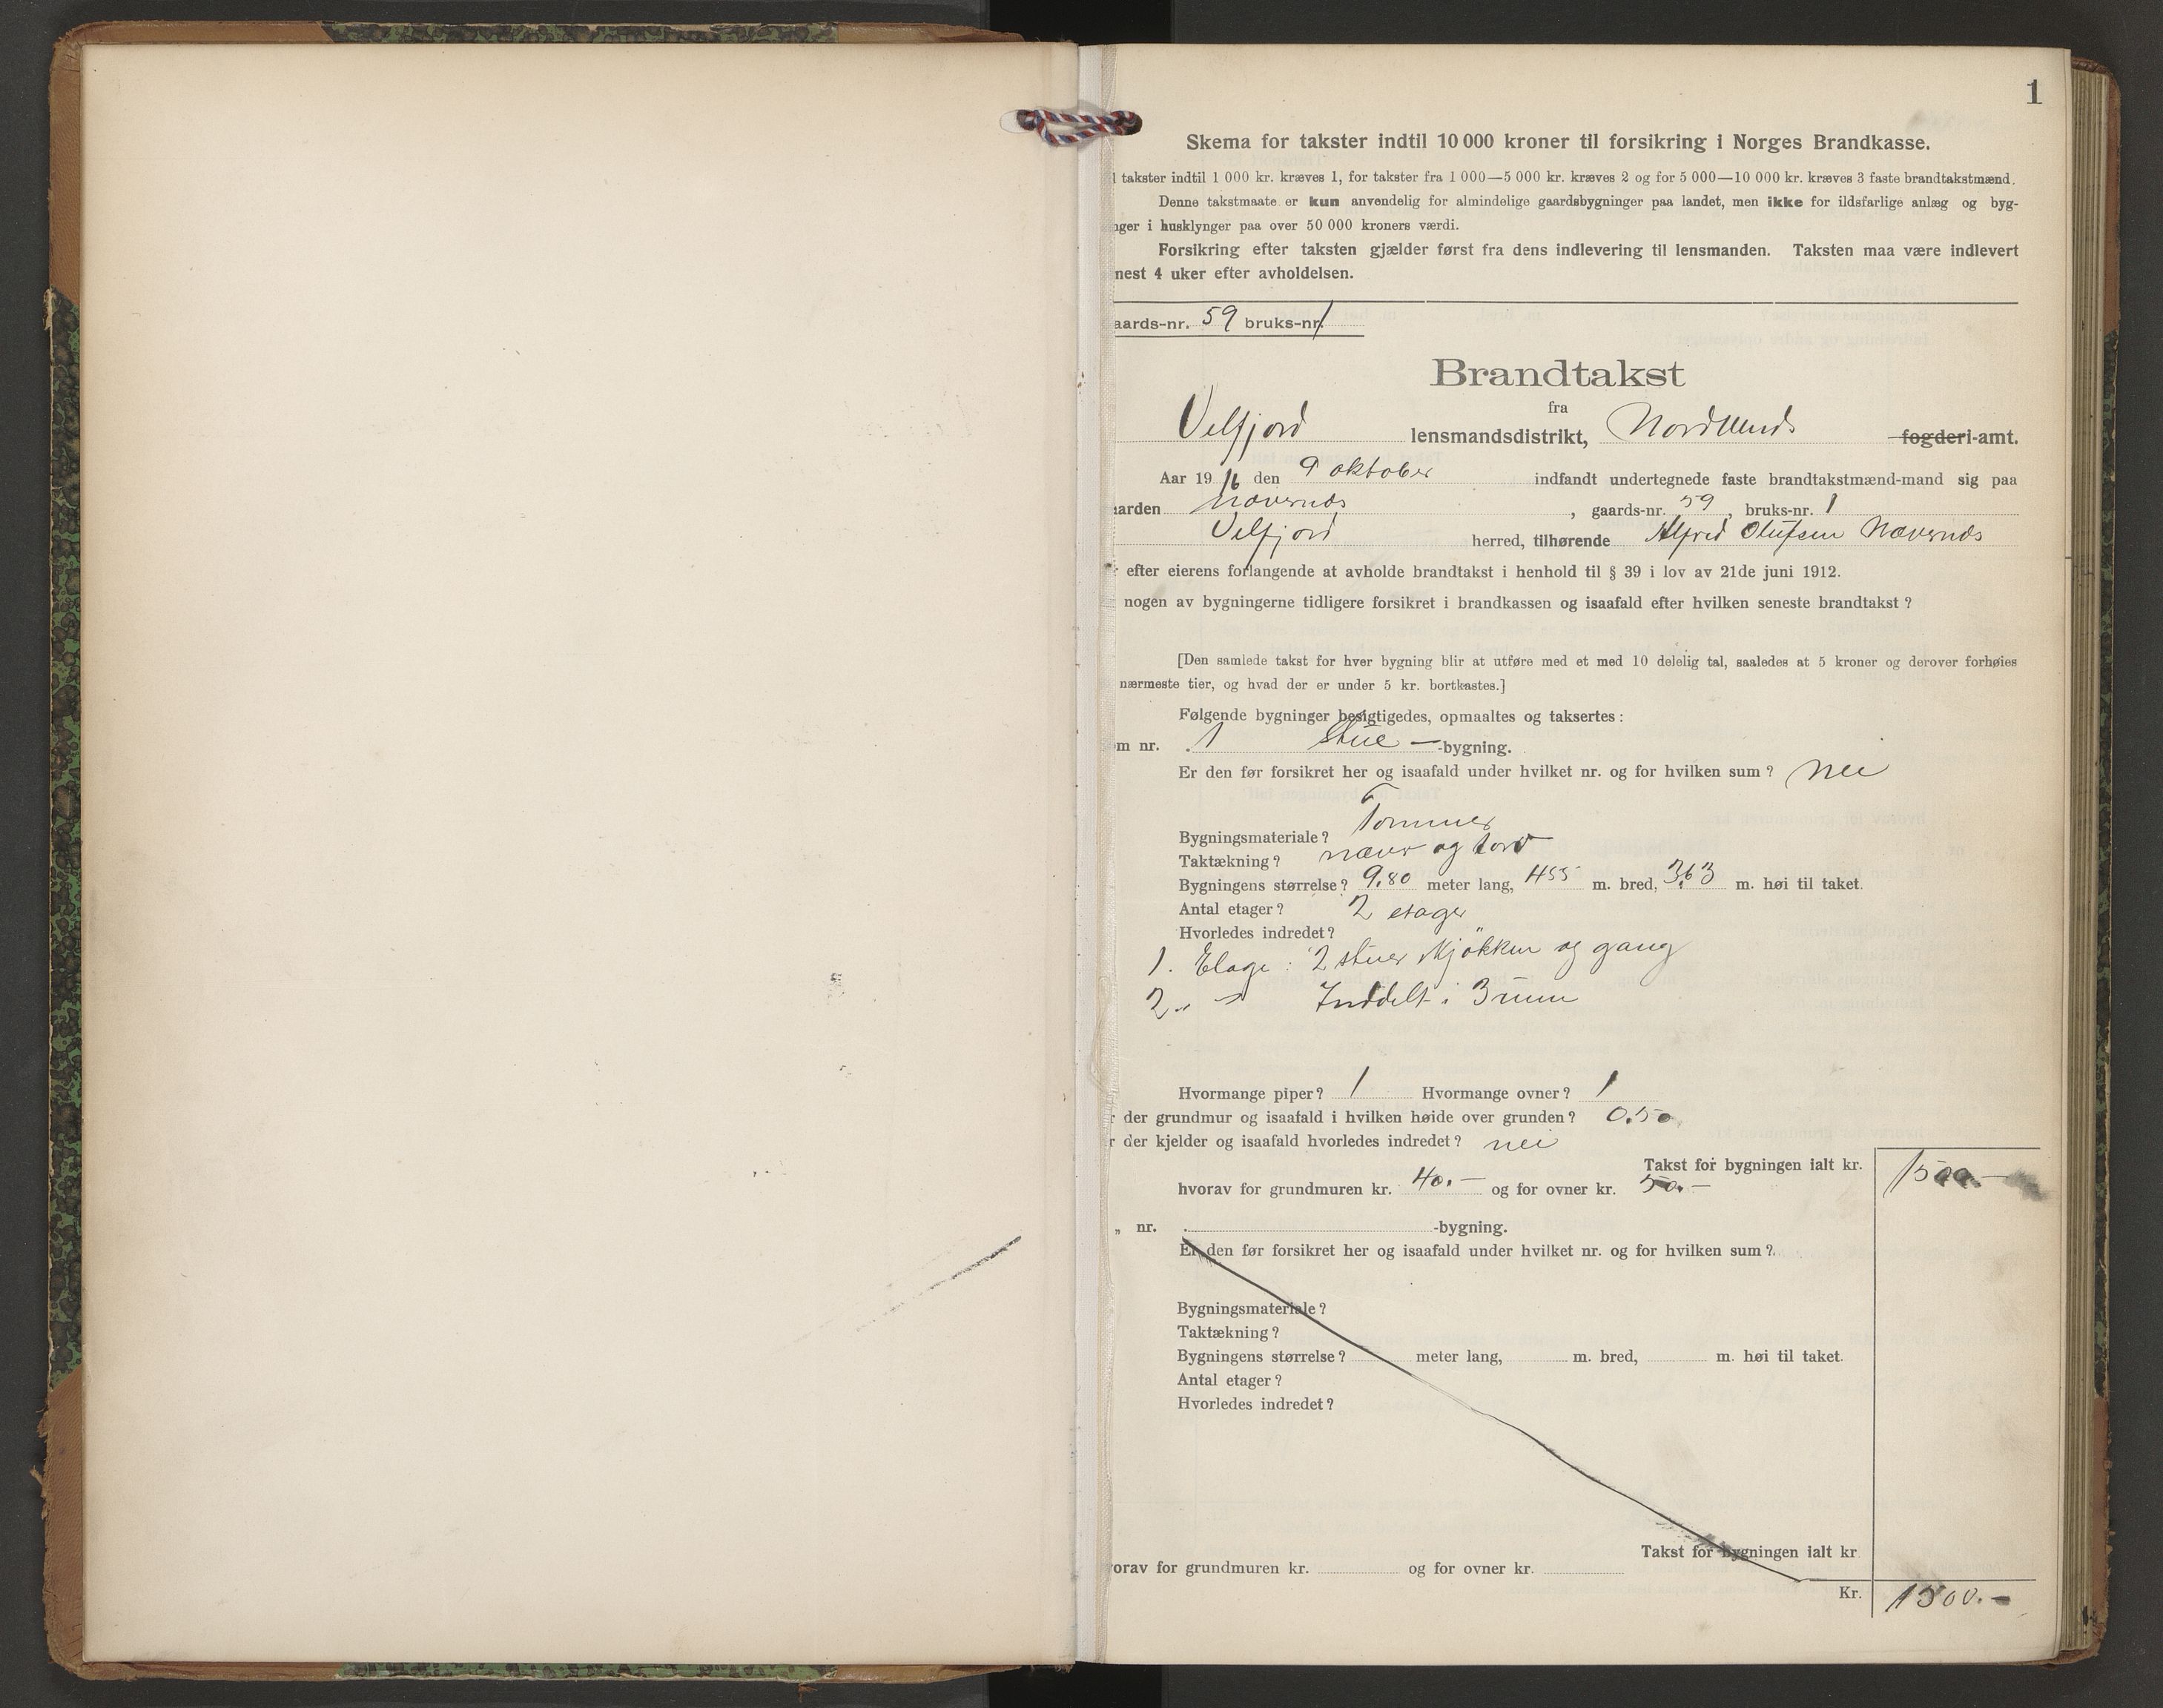 1
Skema for takster indtil 10 000 kroner til forsikring i Norges Brandkasse.
l takster indtil 1 000 kr. kræves 1, for takster fra 1 000—5 000 kr. kræves 2 og for 5 000—10 000 kr. kræves 3 faste brandtakstmænd.
Denne takstmaate er kun anvendelig for almindelige gaardsbygninger paa landet, men ikke for ildsfarlige anlæg og byg-
nger i husklynger paa over 50 000 kroners værdi.
Forsikring efter taksten gjælder først fra dens indlevering til lensmanden. Taksten maa være indlevert
nest 4 uker efter avholdelsen.
aards-nr. 59 bruks-nr. 1
Brandtakst
fra
Velfjord lensmandsdistrikt, Nordlands fogderi-amt.
Aar 1916 den 9 oktober indfandt undertegnede faste brandtakstmænd-mand sig paa
arden Nævernes, gaards-nr. 59, bruks-nr. 1
Velfjord herred, tilhørende Alfred Olufsen Nævernes
efter eierens forlangende at avholde brandtakst i henhold til § 39 i lov av 21de juni 1912.
nogen av bygningerne tidligere forsikret i brandkassen og isaafald efter hvilken seneste brandtakst?
[Den samlede takst for hver bygning blir at utføre med et med 10 delelig tal, saaledes at 5 kroner og derover forhøies
nærmeste tier, og hvad der er under 5 kr. bortkastes.]
Følgende bygninger besigtigedes, opmaaltes og taksertes:
om nr. 1 Stue -bygning.
Er den før forsikret her og isaafald under hvilket nr. og for hvilken sum? nei
Bygningsmateriale? Tømmer
Taktækning? næver og torv
Bygningens størrelse? 9.80 meter lang, 455 m. bred, 3.63 m. høi til taket.
Antal etager? 2 etager
Hvorledes indredet?
1. Etage: 2 stuer kjøkken og gang
2. " Inddelt i 3 rum
Hvormange piper? 1 Hvormange ovner? 1
r der grundmur og isaafald i hvilken høide over grunden? 0.50
r der kjelder og isaafald hvorledes indredet? nei
Takst for bygningen ialt kr. 1500.-
hvorav for grundmuren kr. 40.- og for ovner kr. 50.-
„ nr. -bygning.
Er den før forsikret her og isaafald under hvilket nr. og for hvilken sum?
Bygningsmateriale?
Taktækning?
Bygningens størrelse? meter lang, m. bred, m. høi til taket.
Antal etager?
Hvorledes indredet?
Takst for bygningen ialt kr
vorav for grundmuren kr. og for ovner kr.
Kr. 1500.-